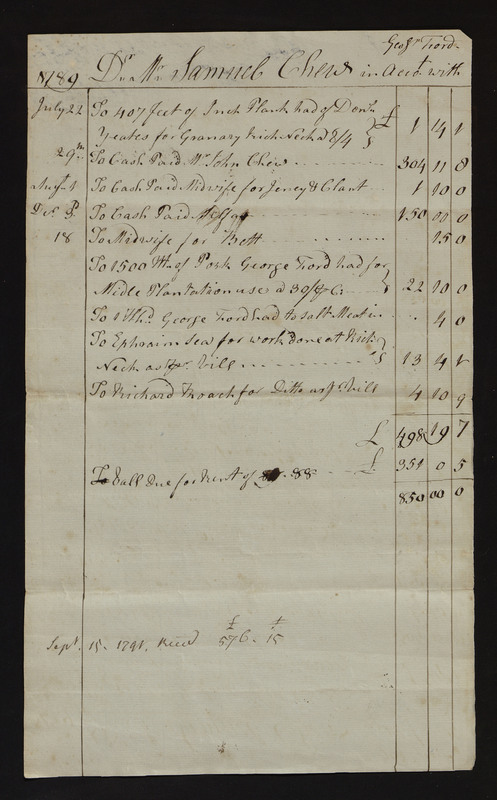 Geo: Ford
1789 Dr. Mr. Samuel Chew in Acct. with
July 22 To 407 feet of Inch Plank had of Donl.
Yeates for Granary Rich Neck a 8/4 £ 1 14 1
29th To Cash Paid Mr. John Chew 304 11 8
August To Cash Paid Midwife for Jeney & Clant 1 10 0
Decr. To Cash Paid 150 00 0
18 To Midwife for Bett 15 0
To 1500 Wt. of Pork George Ford had for
Midle Plantation use a 30/ 22 10 0
To George Ford had to salt Meat in 4 0
To Ephraim for work done at Rich
Neck as pr. bill 13 4 1
To Richard Roach for Ditto as pr. bill 4 10 9
£ 498 19 7
To Ball due for Rent of 88 £ 351 0 5
850 00 0
Sept. 15. 1791. Recd £ 576. 15